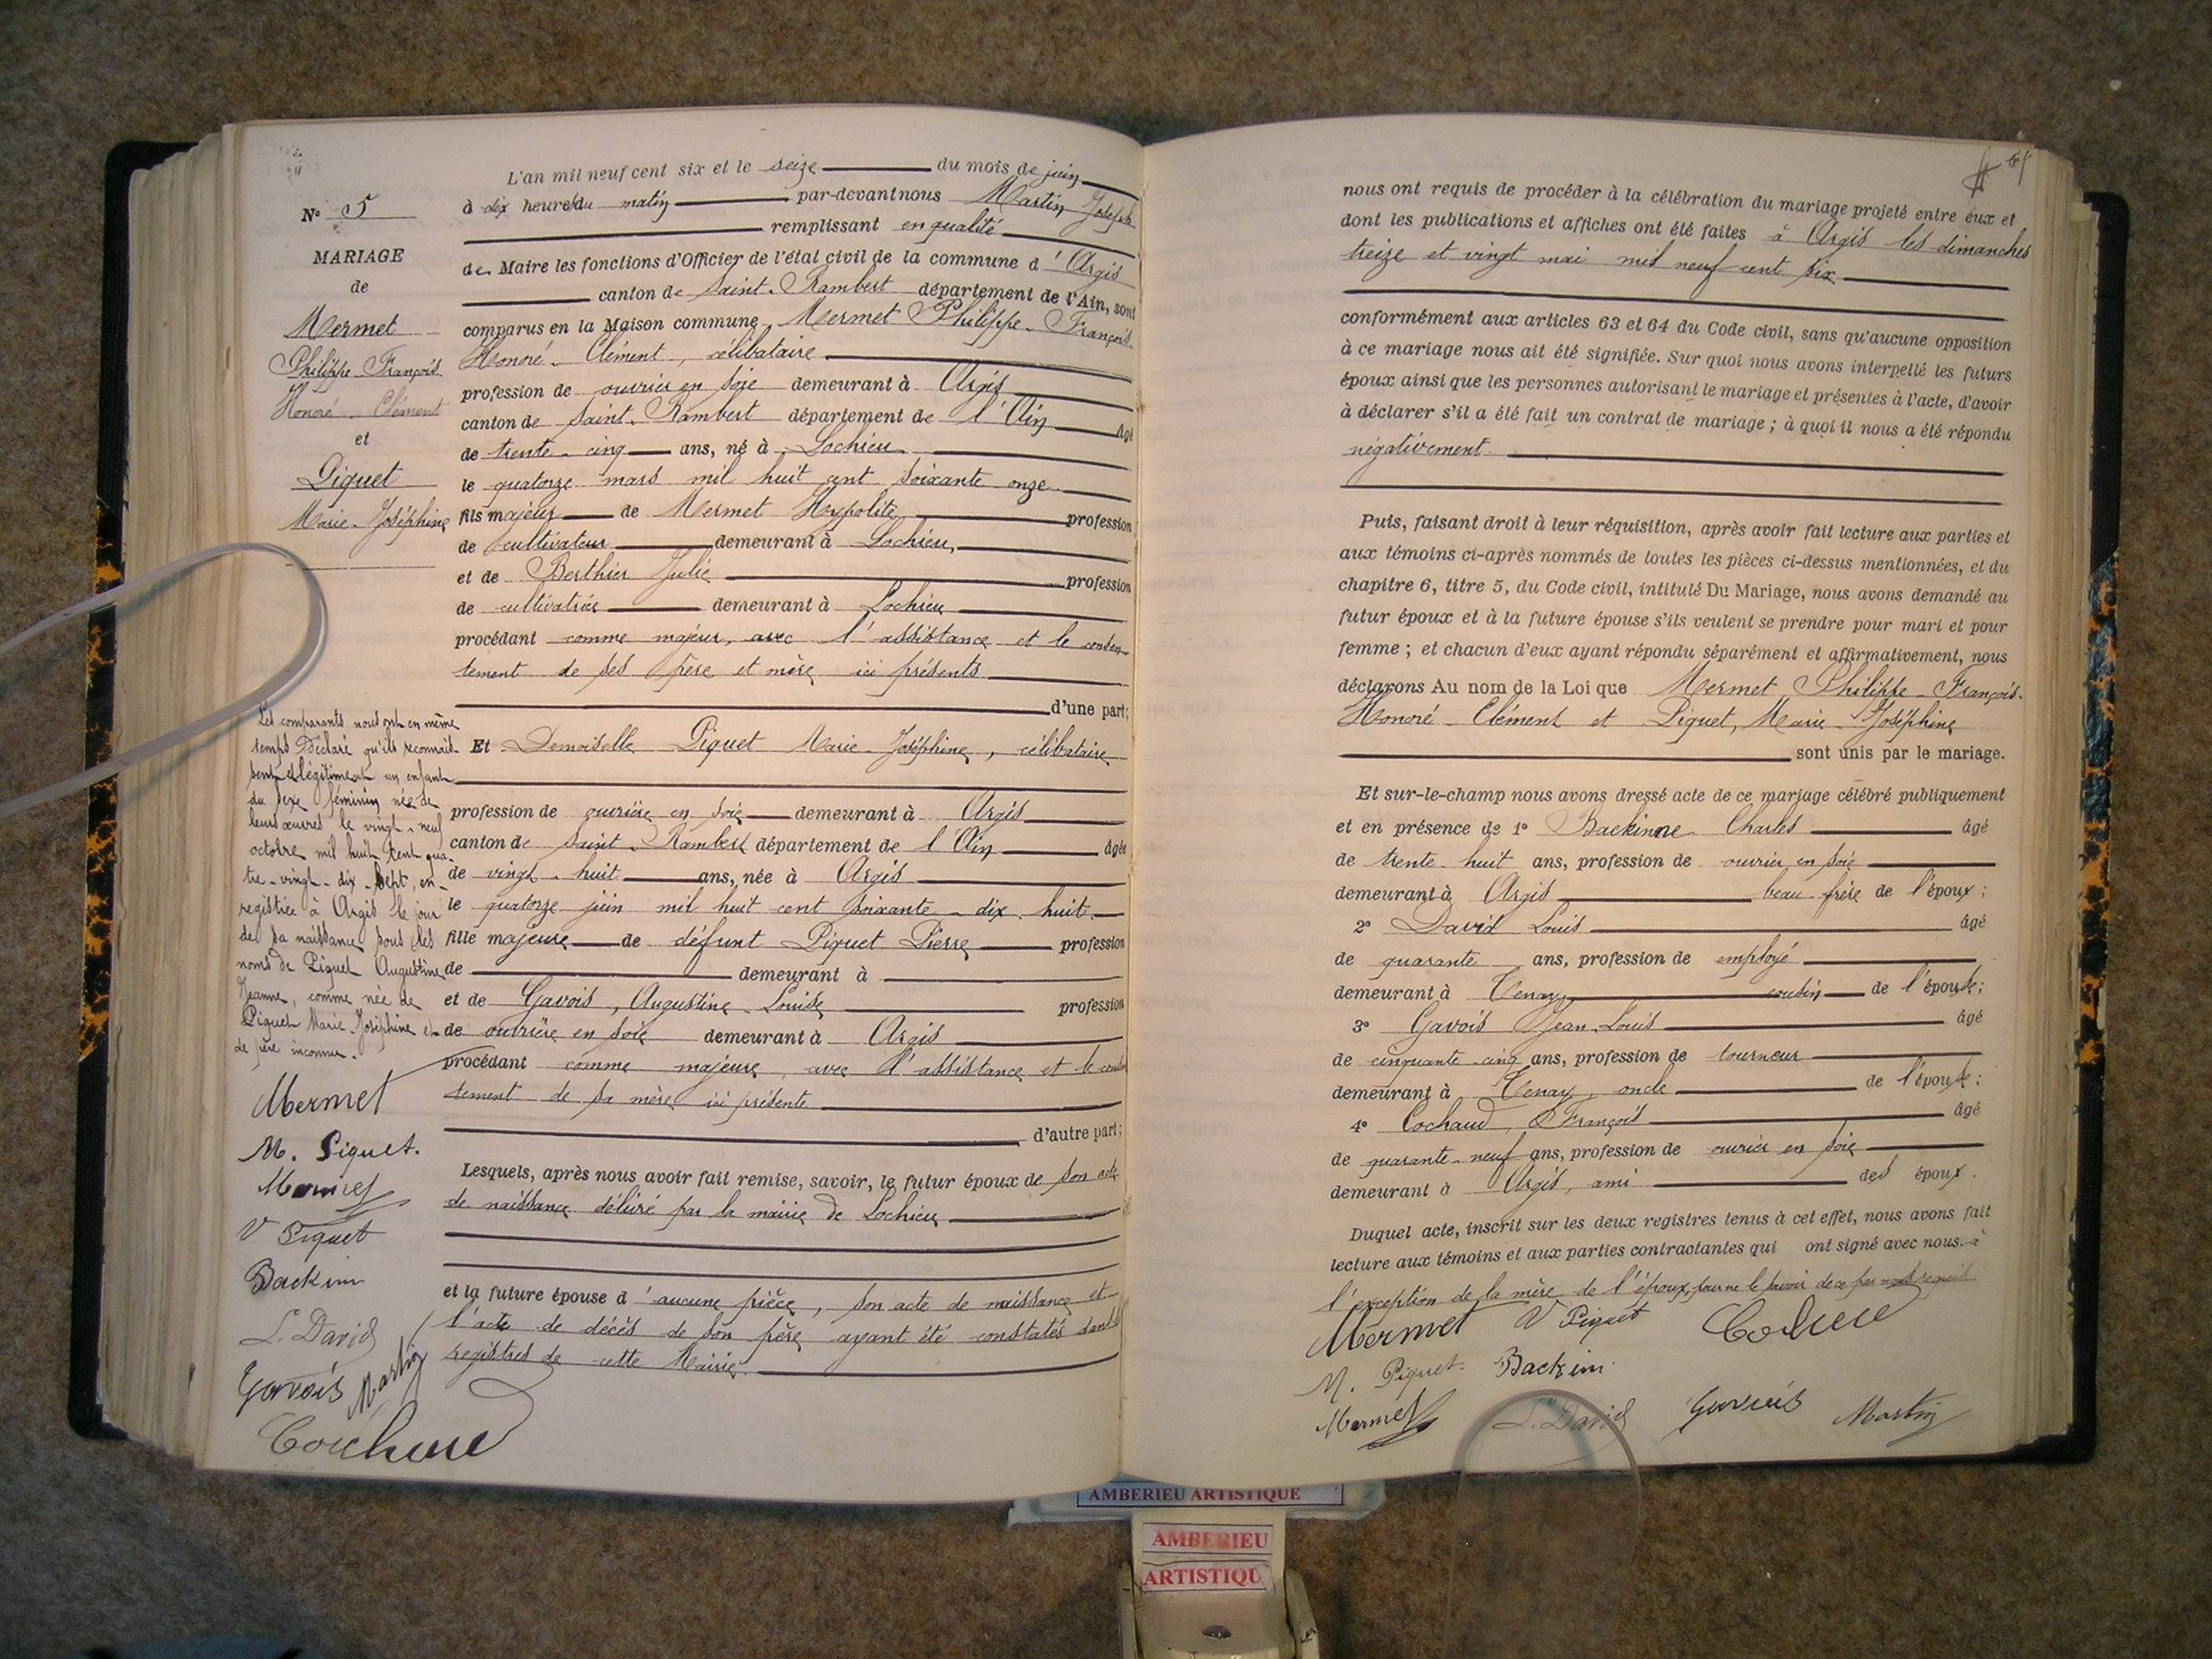 N° 5
MARIAGE
de
Mermet
Philippe-François-
Honoré-Clément
et
Piquet
Marie-Joséphine
Les comparants nous ont en même
temps déclaré qu'ils reconnais-
sent et légitiment un enfant
du sexe féminin née de
leurs œuvres le vingt-neuf
octobre mil huit cent qua-
tre-vingt-dix-sept, en-
registrée à Argis le jour
de sa naissance sous les
noms de Piquet Augustine
Jeanne, comme née de
Piquet Marie-Joséphine et
de père inconnu.
Mermet
M. Piquet.
Mermet
V Piquet
Backinn
L. David
Gavois Martin
L'an mil neuf cent six et le seize du mois de juin
à dix heures du matin par-devant nous Martin Joseph
remplissant en qualité
de Maire les fonctions d'Officier de l'état civil de la commune d'Argis
canton de Saint-Rambert département de l'Ain, sont
comparus en la Maison commune, Mermet Philippe-François-
Honoré-Clément, célibataire
profession de ouvrier en soie demeurant à Argis
canton de Saint-Rambert département de l'Ain âgé
de trente-cinq ans, né à Lochieu
le quatorze mars mil huit cent soixante onze
fils majeur de Mermet Hypolite profession
de cultivateur demeurant à Lochieu,
et de Berthier Julie profession
de cultivatrice demeurant à Lochieu
procédant comme majeur, avec l'assistance et le consen-
tement de ses père et mère ici présents
d'une part;
Et Demoiselle Piquet Marie-Joséphine, célibataire
profession de ouvrière en soie demeurant à Argis
canton de Saint-Rambert département de l'Ain âgée
de vingt-huit ans, née à Argis
le quatorze juin mil huit cent soixante-dix-huit
fille majeure de défunt Piquet Pierre profession
de demeurant à
et de Gavois, Augustine-Louise profession
de ouvrière en soie demeurant à Argis
procédant comme majeure, avec l'assistance et le consen
tement de sa mère ici présente
d'autre part;
Lesquels, après nous avoir fait remise, savoir, le futur époux de son acte
de naissance délivré par la mairie de Lochieu
et la future épouse d'aucune pièce, son acte de naissance et
l'acte de décès de son père ayant été constatés dans les
registres de cette Mairie.
nous ont requis de procéder à la célébration du mariage projeté entre eux et
dont les publications et affiches ont été faites à Argis les dimanches
treize et vingt mai mil neuf cent six
conformément aux articles 63 et 64 du Code civil, sans qu'aucune opposition
à ce mariage nous ait été signifiée. Sur quoi nous avons interpellé les futurs
époux ainsi que les personnes autorisant le mariage et présentes à l'acte, d'avoir
à déclarer s'il a été fait un contrat de mariage; à quoi il nous a été répondu
négativement.
Puis, faisant droit à leur réquisition, après avoir fait lecture aux parties et
aux témoins ci-après nommés de toutes les pièces ci-dessus mentionnées, et du
chapitre 6, titre 5, du Code civil, intitulé Du Mariage, nous avons demandé au
futur époux et à la future épouse s'ils veulent se prendre pour mari et pour
femme; et chacun d'eux ayant répondu séparément et affirmativement, nous
déclarons Au nom de la Loi que Mermet, Philippe-François-
Honoré-Clément et Piquet, Marie-Joséphine
sont unis par le mariage.
Et sur-le-champ nous avons dressé acte de ce mariage célébré publiquement
et en présence de 1° Backinne Charles âgé
de trente-huit ans, profession de ouvrier en soie
demeurant à Argis beau-frère de l'époux;
2° David Louis âgé
de quarante ans, profession de employé
demeurant à Tenay, cousin de l'épouse;
3° Gavois Jean-Louis âgé
de cinquante-cinq ans, profession de tourneur
demeurant à Tenay, oncle de l'épouse;
4° Cochaud, François âgé
de quarante-neuf ans, profession de ouvrier en soie
demeurant à Argis, ami des époux.
Duquel acte, inscrit sur les deux registres tenus à cet effet, nous avons fait
lecture aux témoins et aux parties contractantes qui ont signé avec nous à
l'exception de la mère de l'époux, pour ne le savoir de ce par nous requis
Mermet V Piquet
M. Piquet. Backinn.
Mermet L. David Gavois Martin
AMBERIEU ARTISTIQUE
AMBERIEU
ARTISTIQU